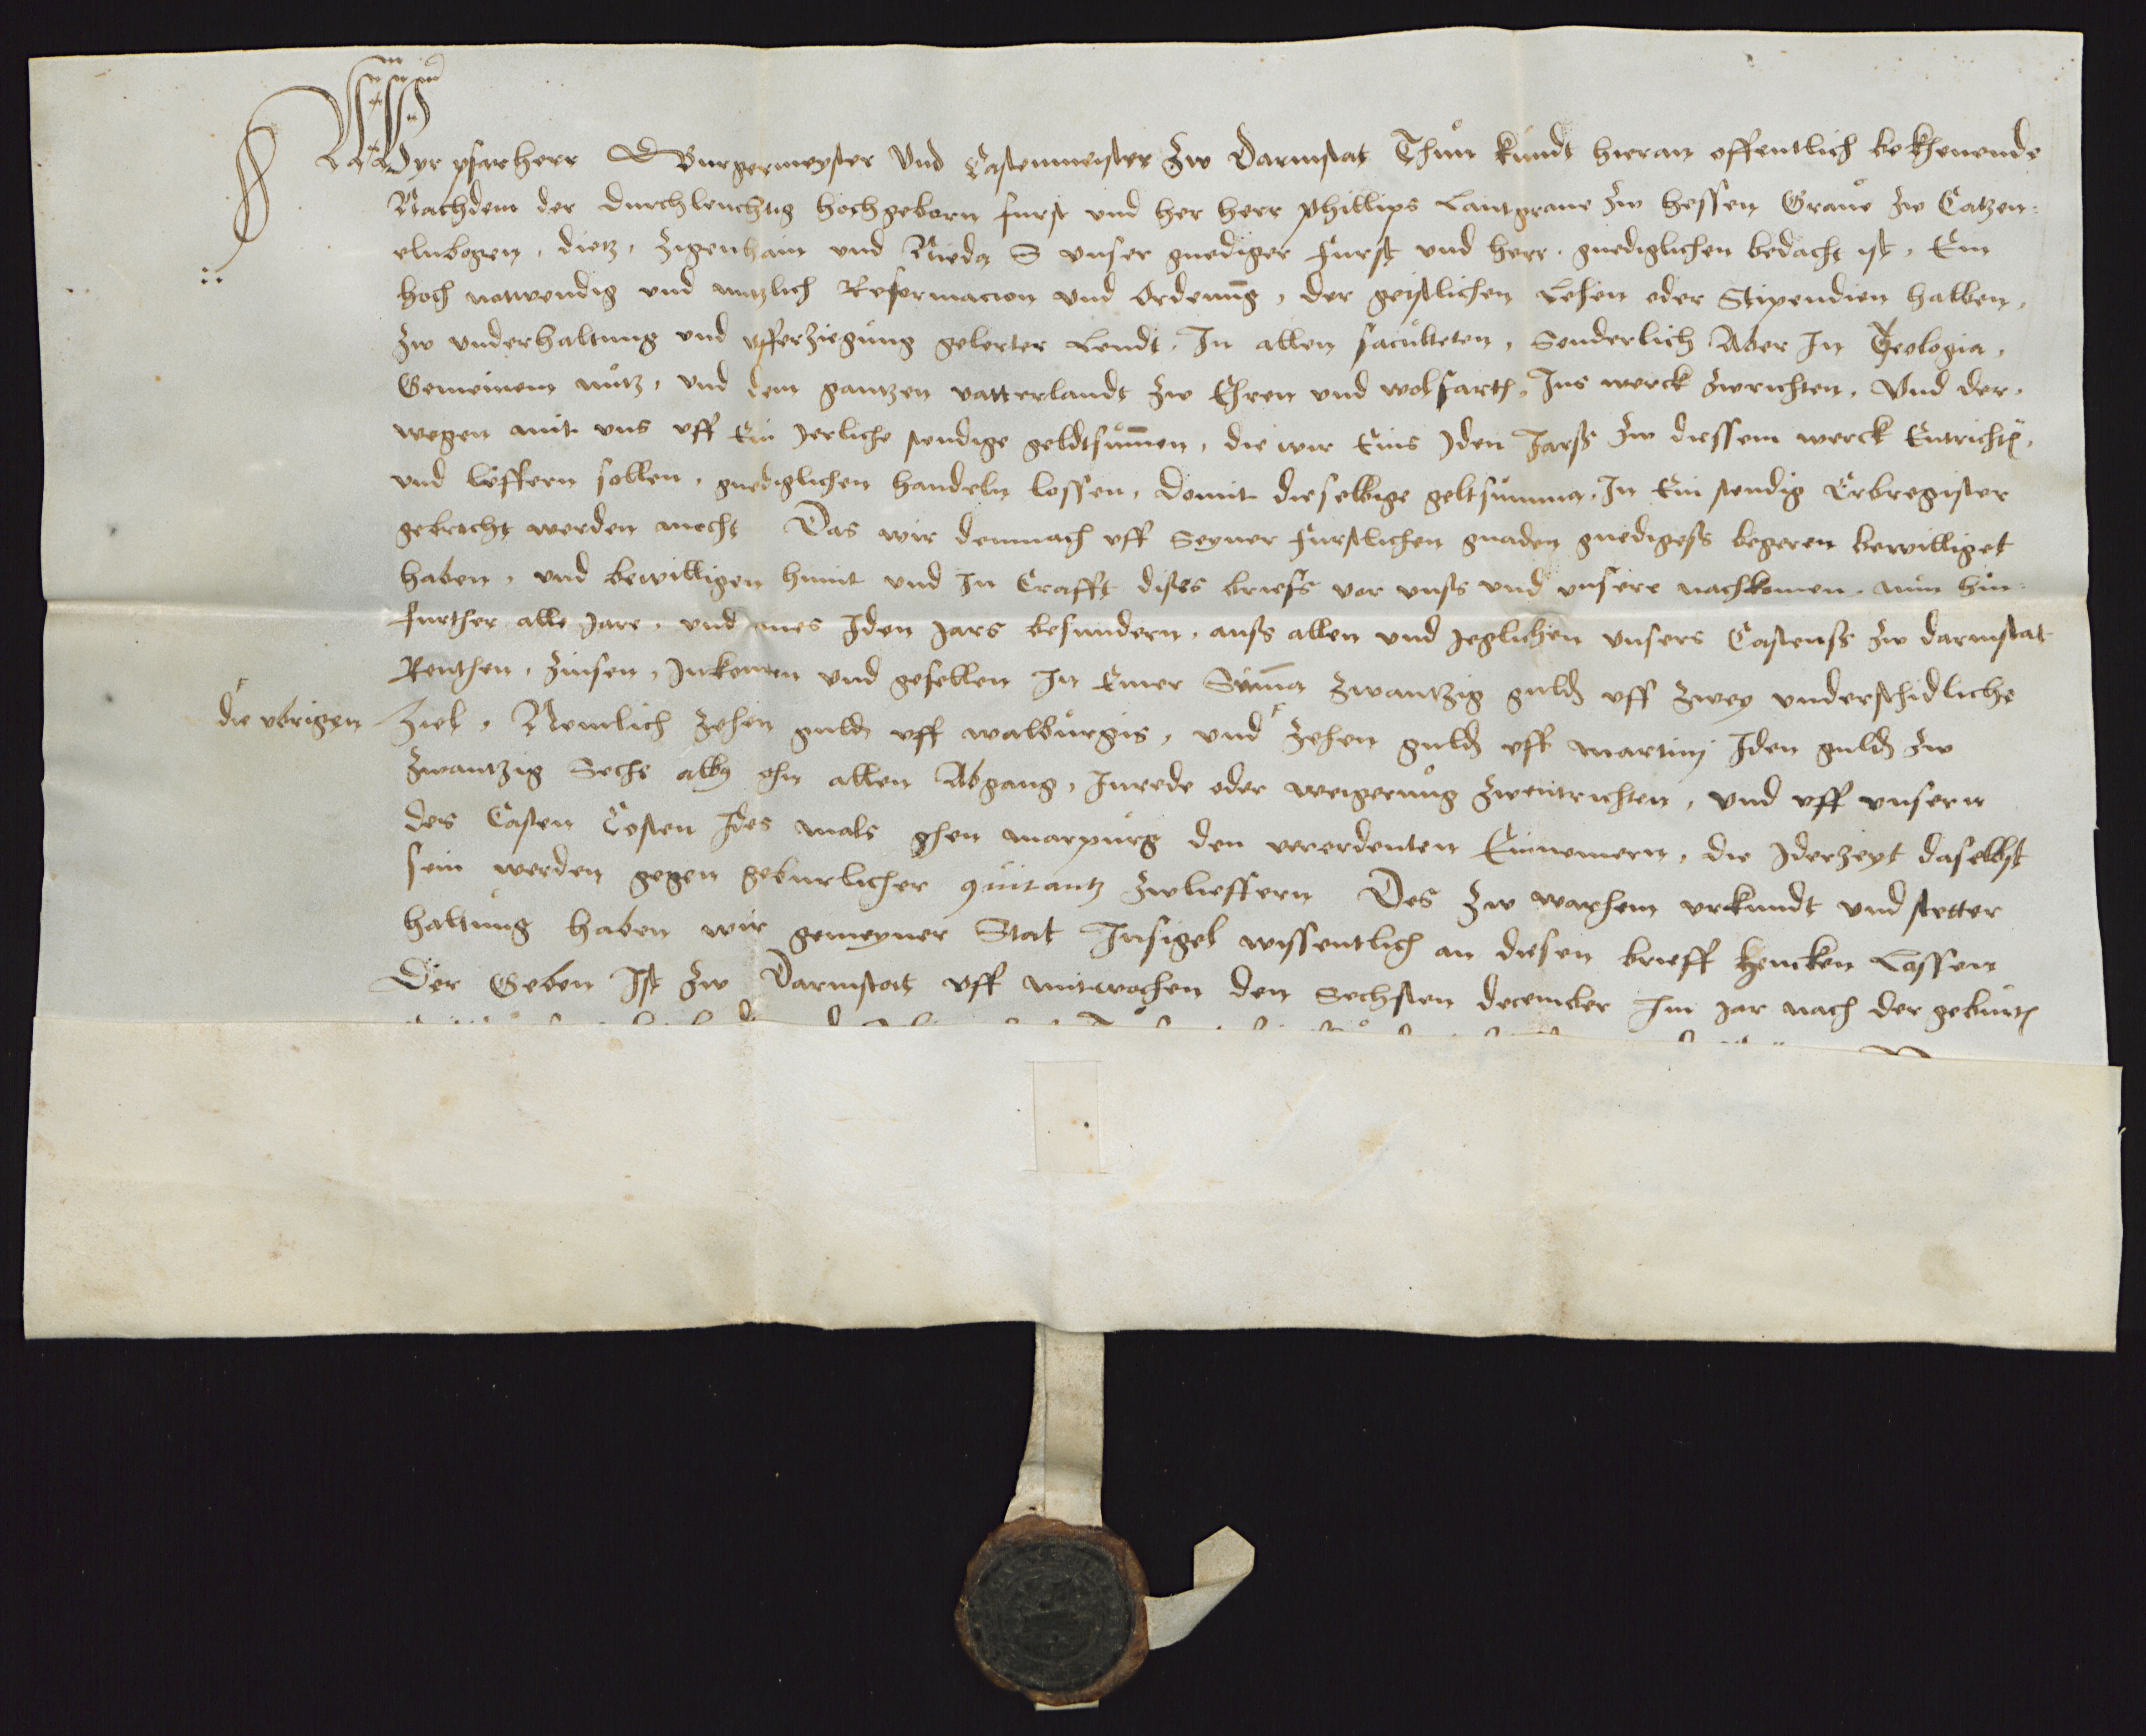 Wyr pfarherr Burgermeyster Vnd Castenmeister zw Darmstat Thun kundt hieran offentlich bekhenende
Nachdem der durchleuchtig hochgeborn furst vnd her herr Phillips Lantgraue zw Hessen Graue zw Catzen:
elnbogen, dietz, Zigenhain vnd Nieda vnser gnediger Furst vnd herr, gnediglichen bedacht ist, Ein
hoch notwendig vnd nutzlich Reformacion vnd Ordenung, der geistlichen Lehen oder Stipendien halben,
zw vnderhaltung vnd vfferziegung gelerter Leudt, In allen faculteten, Sonderlich Aber In Teologia,
Gemeinem nutz, vnd dem gantzen vatterlandt zw Ehren vnd wolfarth, Ins werck zwrichten, Vnd der,
wegen mit vns vff Ein Jerliche stendige geldtsummen, die wir Eins Jden Jarß zw diessem werck Entrichten,
vnd lieffern sollen, gnediglichen handeln lossen, domit dieselbige geltsumma, In Ein stendig Erbregister
gebrocht werden mocht Das wir demnach vff Seyner furstlichen gnaden gnedigeß begeren bewilliget
haben, vnd bewilligen himit vnd In Crafft dises briefs vor vnß vnd vnsere nachkomen, nun hin:
further alle Jare, vnd eines Jden Jars besundern, auß allen vnd Jeglichen vnsers Castenß zw darmstat
Renthen, Zinsen, Inkomen vnd gefellen In Einer Summa zwantzig guld vff zwey vnderschidliche
Ziel, Nemlich zehen guld vff walburgis, vnd zehen guld vff martinj Iden guld zw
die vbrigen
zwantzig Sechs albus ohn allen Abgang, Inrede oder weigerung zwentrichten, vnd vff vnsern
des Casten Costen Ides mals ghen marpurg den verordenten Einnemern, die Iderzeyt daselbst
sein werden gegen geburlicher quitantz zwlieffern Des zw warhem vrkundt vnd stetter
haltung haben wir gemeyner Stat Insigel wissentlich an diesen brieff hencken Lassen
Der Geben Ist zw Darmstat vff mitwochen den Sechsten december Im Jar nach der geburth